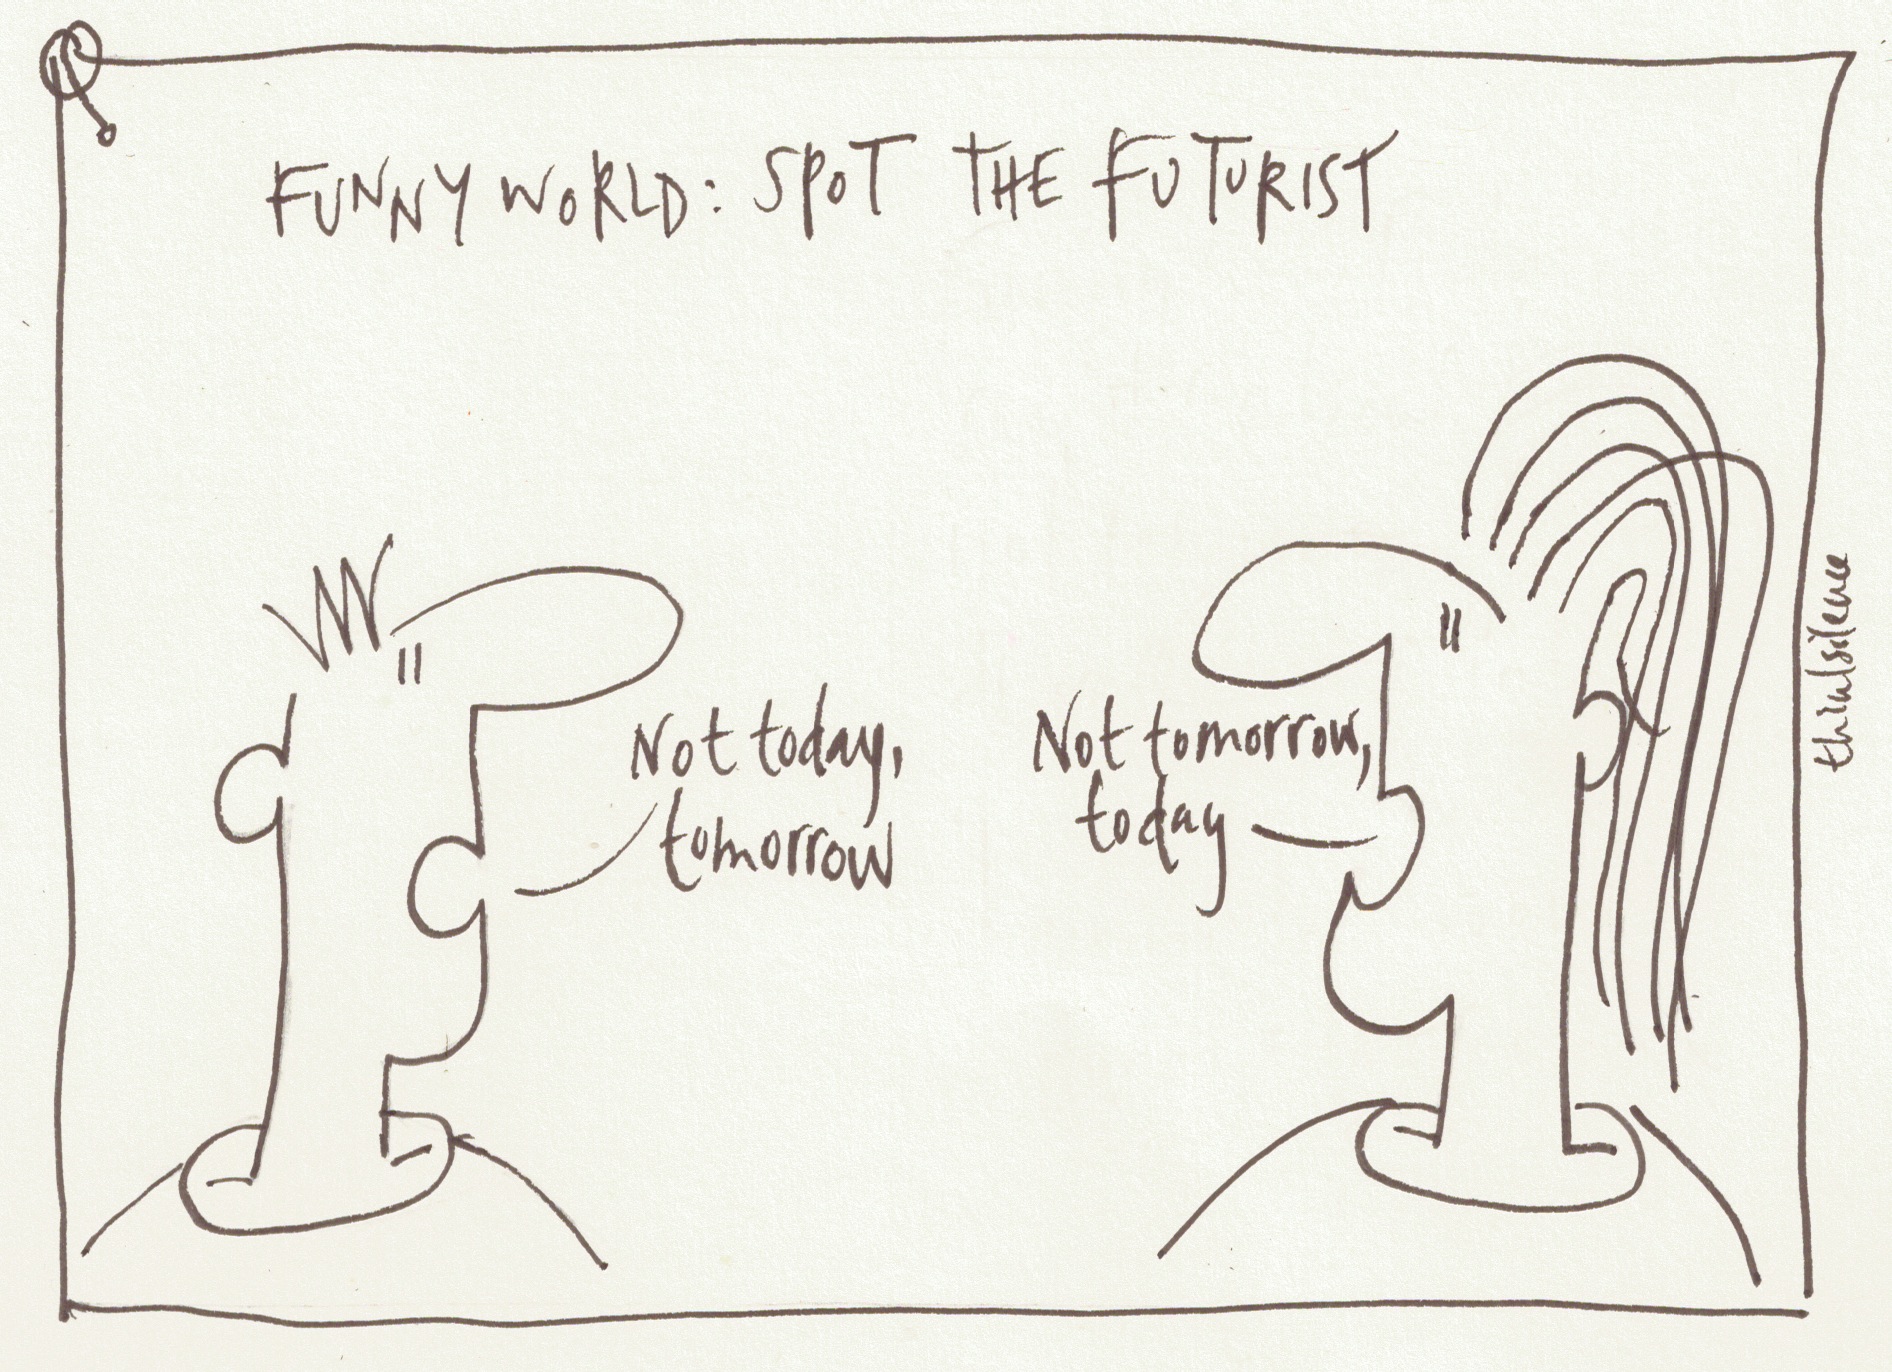 FUNNY WORLD: SPOT THE FUTURIST
Not today,
tomorrow
Not tomorrow,
today